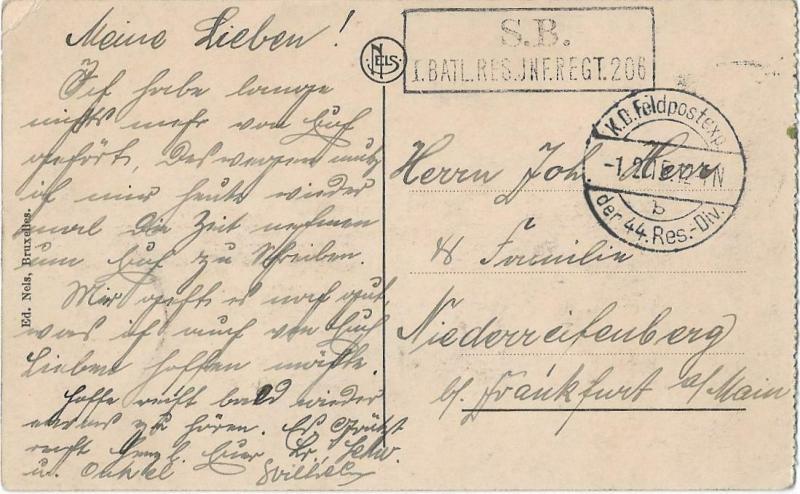 Meine Lieben!
Ich habe lange
nichts mehr von Euch
gehört, Deswegen muß
ich mir heute wieder
mal die Zeit nehmen
um Euch zu Schreiben.
Mir geht es noch gut,
was ich auch von Euch
Lieben hoffen möchte.
hoffe recht bald wieder
etwas zu hören. Es Grüßt
recht herzl. Euer Br., Schw.
u. Onkel
Ed. Nels, Bruxelles.
NELS
S.B.
I.BATL.RES.JNF.REGT.206
K.D.Feldpostexp.
-1.2.15.12-1N
b
der 44.Res.-Div.
Herrn Joh. Herr
& Familie
Niederreifenberg
b/ Frankfurt a/Main